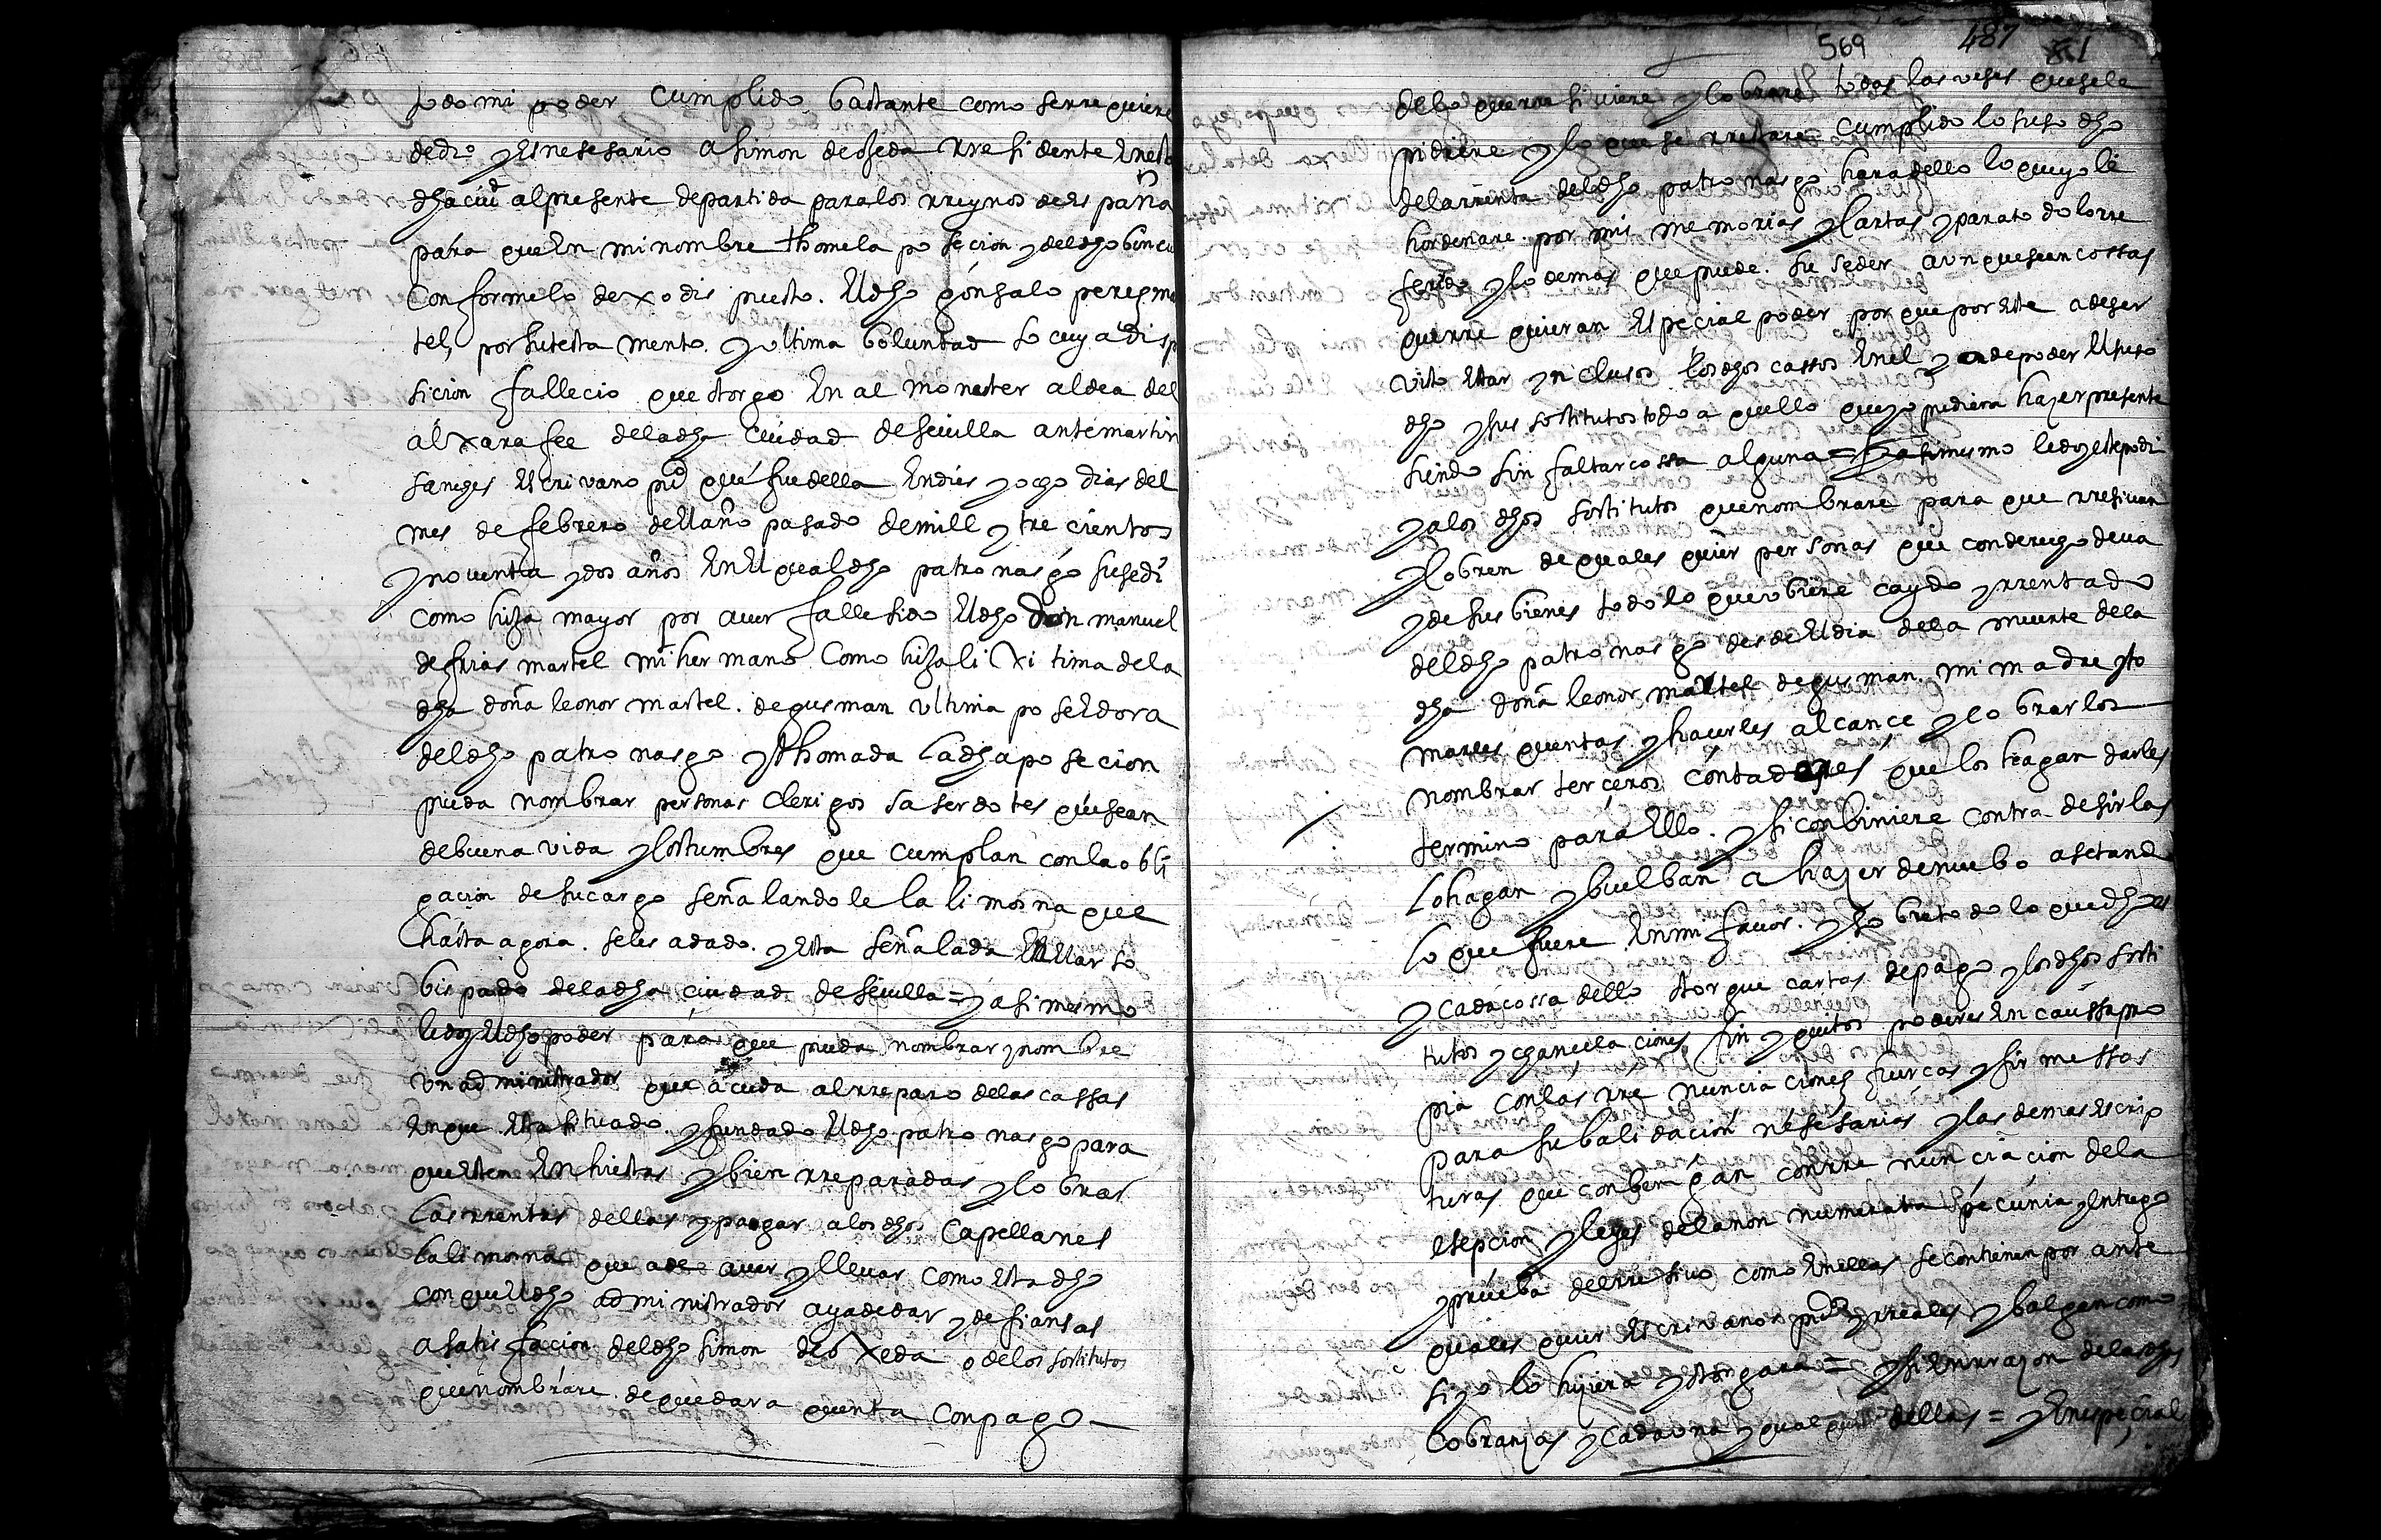 todo mi poder cumplido bastante como se rrequiere
de dro y es nesesario a simon de ojeda rresidente en esta
dha ciud al presente de partida para los rreynos de españa
para que en mi nombre thome la posecion del dho bincu
conforme lo dexo dispuesto el dho gonsalo peres mar
tel, por su testamento y ultima boluntad so cuya disp
sicion fallecio que otorgo en almonester aldea del
alxarafee de la dha ciudad de seuilla ante martin
sanches escrivano puco que fue della en dies y ocho dias del
mes de febrero del año pasado de mill y trecientos
y noventa y dos años en el qual dho patronasgo susedi
como hija mayor por auer fallesido el dho don manuel
de frias martel mi hermano como hija lixitima de la
dha doña leonor martel de gusman ultima poseedora
del dho patronasgo y thomada la dha posecion
pueda nombrar personas clerigos saserdotes que sean
de buena vida y costumbres que cumplan con la obli
gacion de su cargo señalandole la limosna que
hasta agora se les a dado y esta señalada en el arso
bispado de la dha ciudad de seuilla = y asi mismo
le doy el dho poder para que pueda nombrar y nombre
un administrador que acuda al rreparo de las cassas
en que esta situado y fundado el dho patronasgo para
que esten enhiestas y bien rreparadas y cobrar
las rrentas dellas y pagar a los dhos capellanes
la limosna que a de auer y lleuar como esta dho
con que el dho administrador aya de dar y de fiansas
a satisfacion del dho simon de oxeda o de los sostitutos
que nombrare de que dara quenta con pago
569 487 81
de lo que rresiviere y cobrare todas las veses que se le
pidiere y lo que se rrestare cumplido lo suso dho
de la rrenta del dho patronasgo hara dello lo que yo le
hordenare por mis memorias y cartas y para todo lo rre
ferido y lo demas que puede suseder aunque sean cossas
que rrequieran especial poder por que por este a de ser
visto estar ynclusos los dhos cassos en el y a de poder el suso
dho y sus sostitutos todo aquello que yo pudiera hazer presente
siendo sin faltar cossa alguna = y asi mismo le doy este podr
y a los dhos sostitutos que nombrare para que rresivan
y cobren de quales quier personas que con derecho deua
y de sus bienes todo lo que ubiere caydo y rrentado
del dho patronasgo desde el dia de la muerte de la
dha doña leonor martel de gusman mi madre y to
marles quentas y hacerles alcance y cobrarlos
nombrar terceros contadores que los hagan darles
termino para ello y si conbiniere contradesirlas
lo hagan y buelban a hazer de nuebo asetando
lo que fuere en mi favor y sobre todo lo que dho es
y cada cossa dello otorgue cartas de pago y los dhos sosti
tutos y chancelaciones fin y quitos poderes en caussa pro
pia con las rrenunciaciones fuercas y firmessas
para su balidacion nesesarias y las demas escrip
turas que conbengan con rrenunciacion de la
esepcion y leyes de la non numerata pecunia y entrego
y prueba del rresivo como en ellas se contienen por ante
quales quier escrivanos pucos y rreales y balgan como
si yo lo hiziera y otorgara = y si en rrazon de las dhas
cobranzas y cada una y qual quier dellas = y en especial